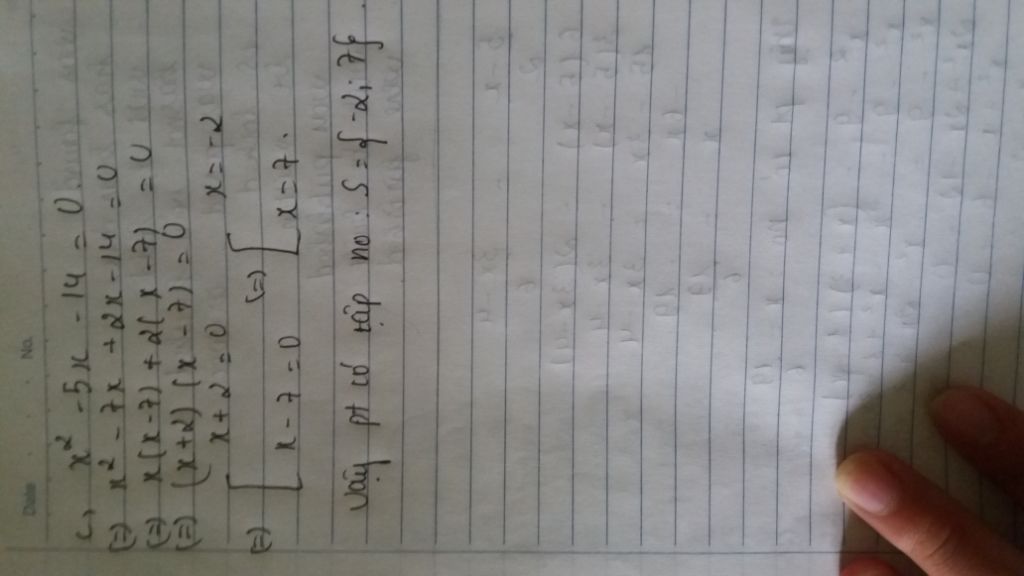 Date No.
c, x² - 5x - 14 = 0
(=) x² - 7x + 2x - 14 = 0
(=) x(x - 7) + 2(x - 7) = 0
(=) (x + 2) (x - 7) = 0
(=) [ x + 2 = 0 (=) [ x = -2
x - 7 = 0 x = 7.
Vậy pt có tập no : S = { -2; 7}